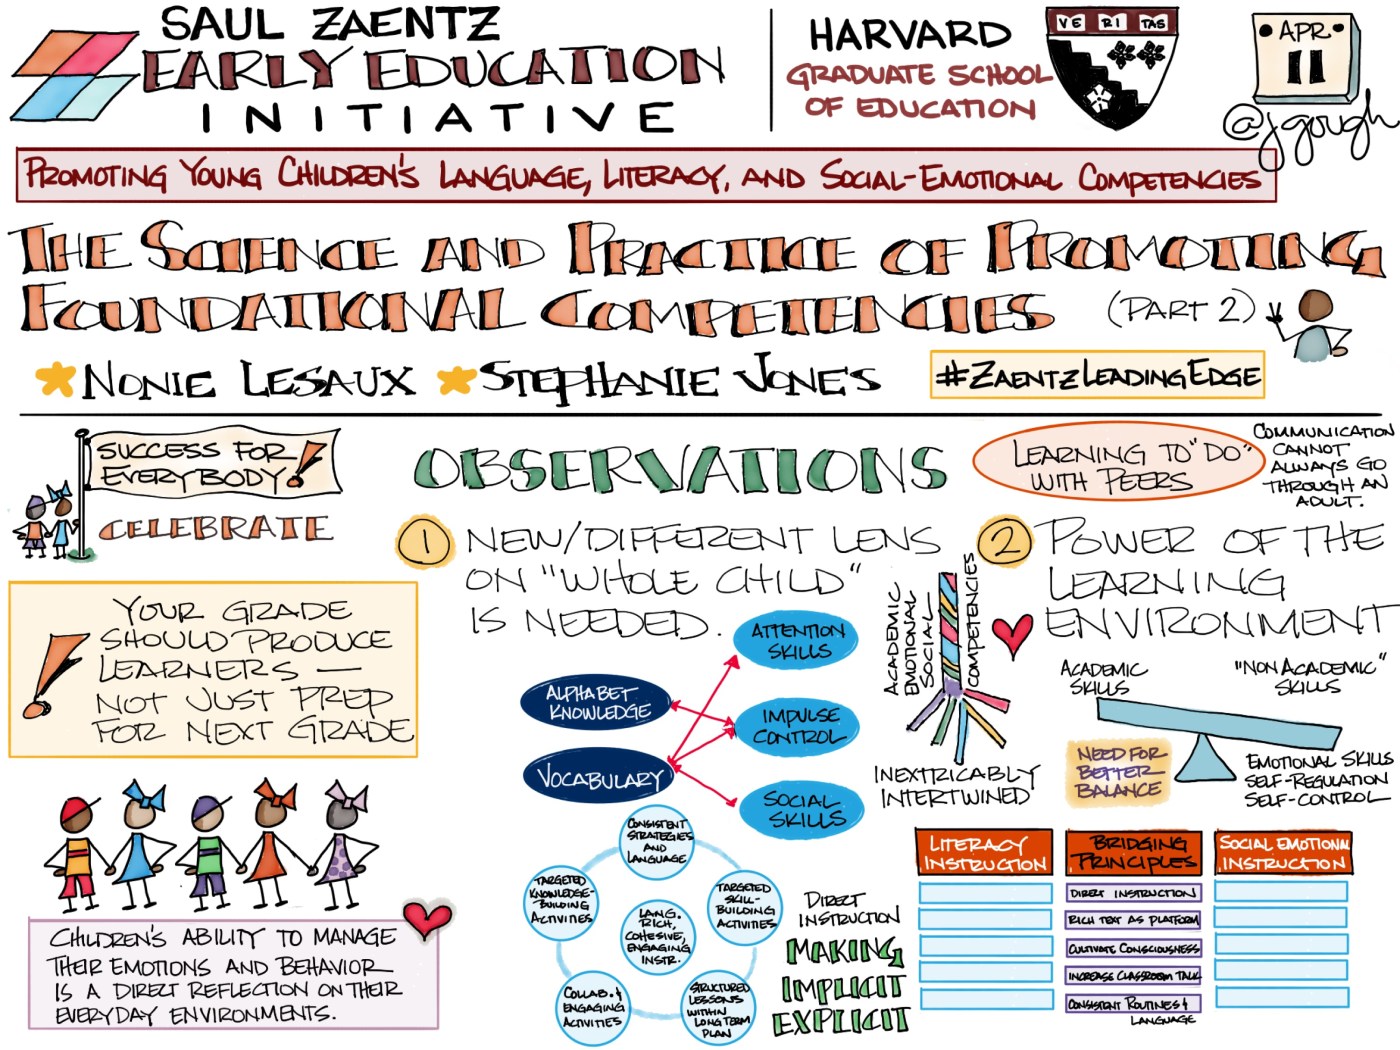 SAUL ZAENTZ
EARLY EDUCATION
INITIATIVE
HARVARD
GRADUATE SCHOOL
OF EDUCATION
VE RI TAS
APR.
11
@jgough
PROMOTING YOUNG CHILDREN'S LANGUAGE, LITERACY, AND SOCIAL-EMOTIONAL COMPETENCIES
THE SCIENCE AND PRACTICE OF PROMOTING
FOUNDATIONAL COMPETENCIES (PART 2)
NONIE LESAUX STEPHANIE JONES #ZAENTZLEADINGEDGE
SUCCESS FOR
EVERYBODY!
CELEBRATE
! YOUR GRADE
SHOULD PRODUCE
LEARNERS —
NOT JUST PREP
FOR NEXT GRADE
CHILDREN'S ABILITY TO MANAGE
THEIR EMOTIONS AND BEHAVIOR
IS A DIRECT REFLECTION ON THEIR
EVERYDAY ENVIRONMENTS.
OBSERVATIONS
1 NEW/DIFFERENT LENS
ON "WHOLE CHILD"
IS NEEDED.
ALPHABET
KNOWLEDGE
VOCABULARY
ATTENTION
SKILLS
IMPULSE
CONTROL
SOCIAL
SKILLS
ACADEMIC
EMOTIONAL
SOCIAL
COMPETENCIES
INEXTRICABLY
INTERTWINED
CONSISTENT
STRATEGIES
AND
LANGUAGE
TARGETED
KNOWLEDGE-
BUILDING
ACTIVITIES
TARGETED
SKILL-
BUILDING
ACTIVITIES
LANG.
RICH,
COHESIVE,
ENGAGING
INSTR.
COLLAB. &
ENGAGING
ACTIVITIES
STRUCTURED
LESSONS
WITHIN
LONG TERM
PLAN
DIRECT
INSTRUCTION
MAKING
IMPLICIT
EXPLICIT
LEARNING TO "DO"
WITH PEERS
COMMUNICATION
CANNOT
ALWAYS GO
THROUGH AN
ADULT.
2 POWER OF THE
LEARNING
ENVIRONMENT
ACADEMIC
SKILLS
"NON ACADEMIC"
SKILLS
NEED FOR
BETTER
BALANCE
EMOTIONAL SKILLS
SELF-REGULATION
SELF-CONTROL
LITERACY
INSTRUCTION
BRIDGING
PRINCIPLES
SOCIAL EMOTIONAL
INSTRUCTION
DIRECT INSTRUCTION
RICH TEXT AS PLATFORM
CULTIVATE CONSCIOUSNESS
INCREASE CLASSROOM TALK
CONSISTENT ROUTINES &
LANGUAGE